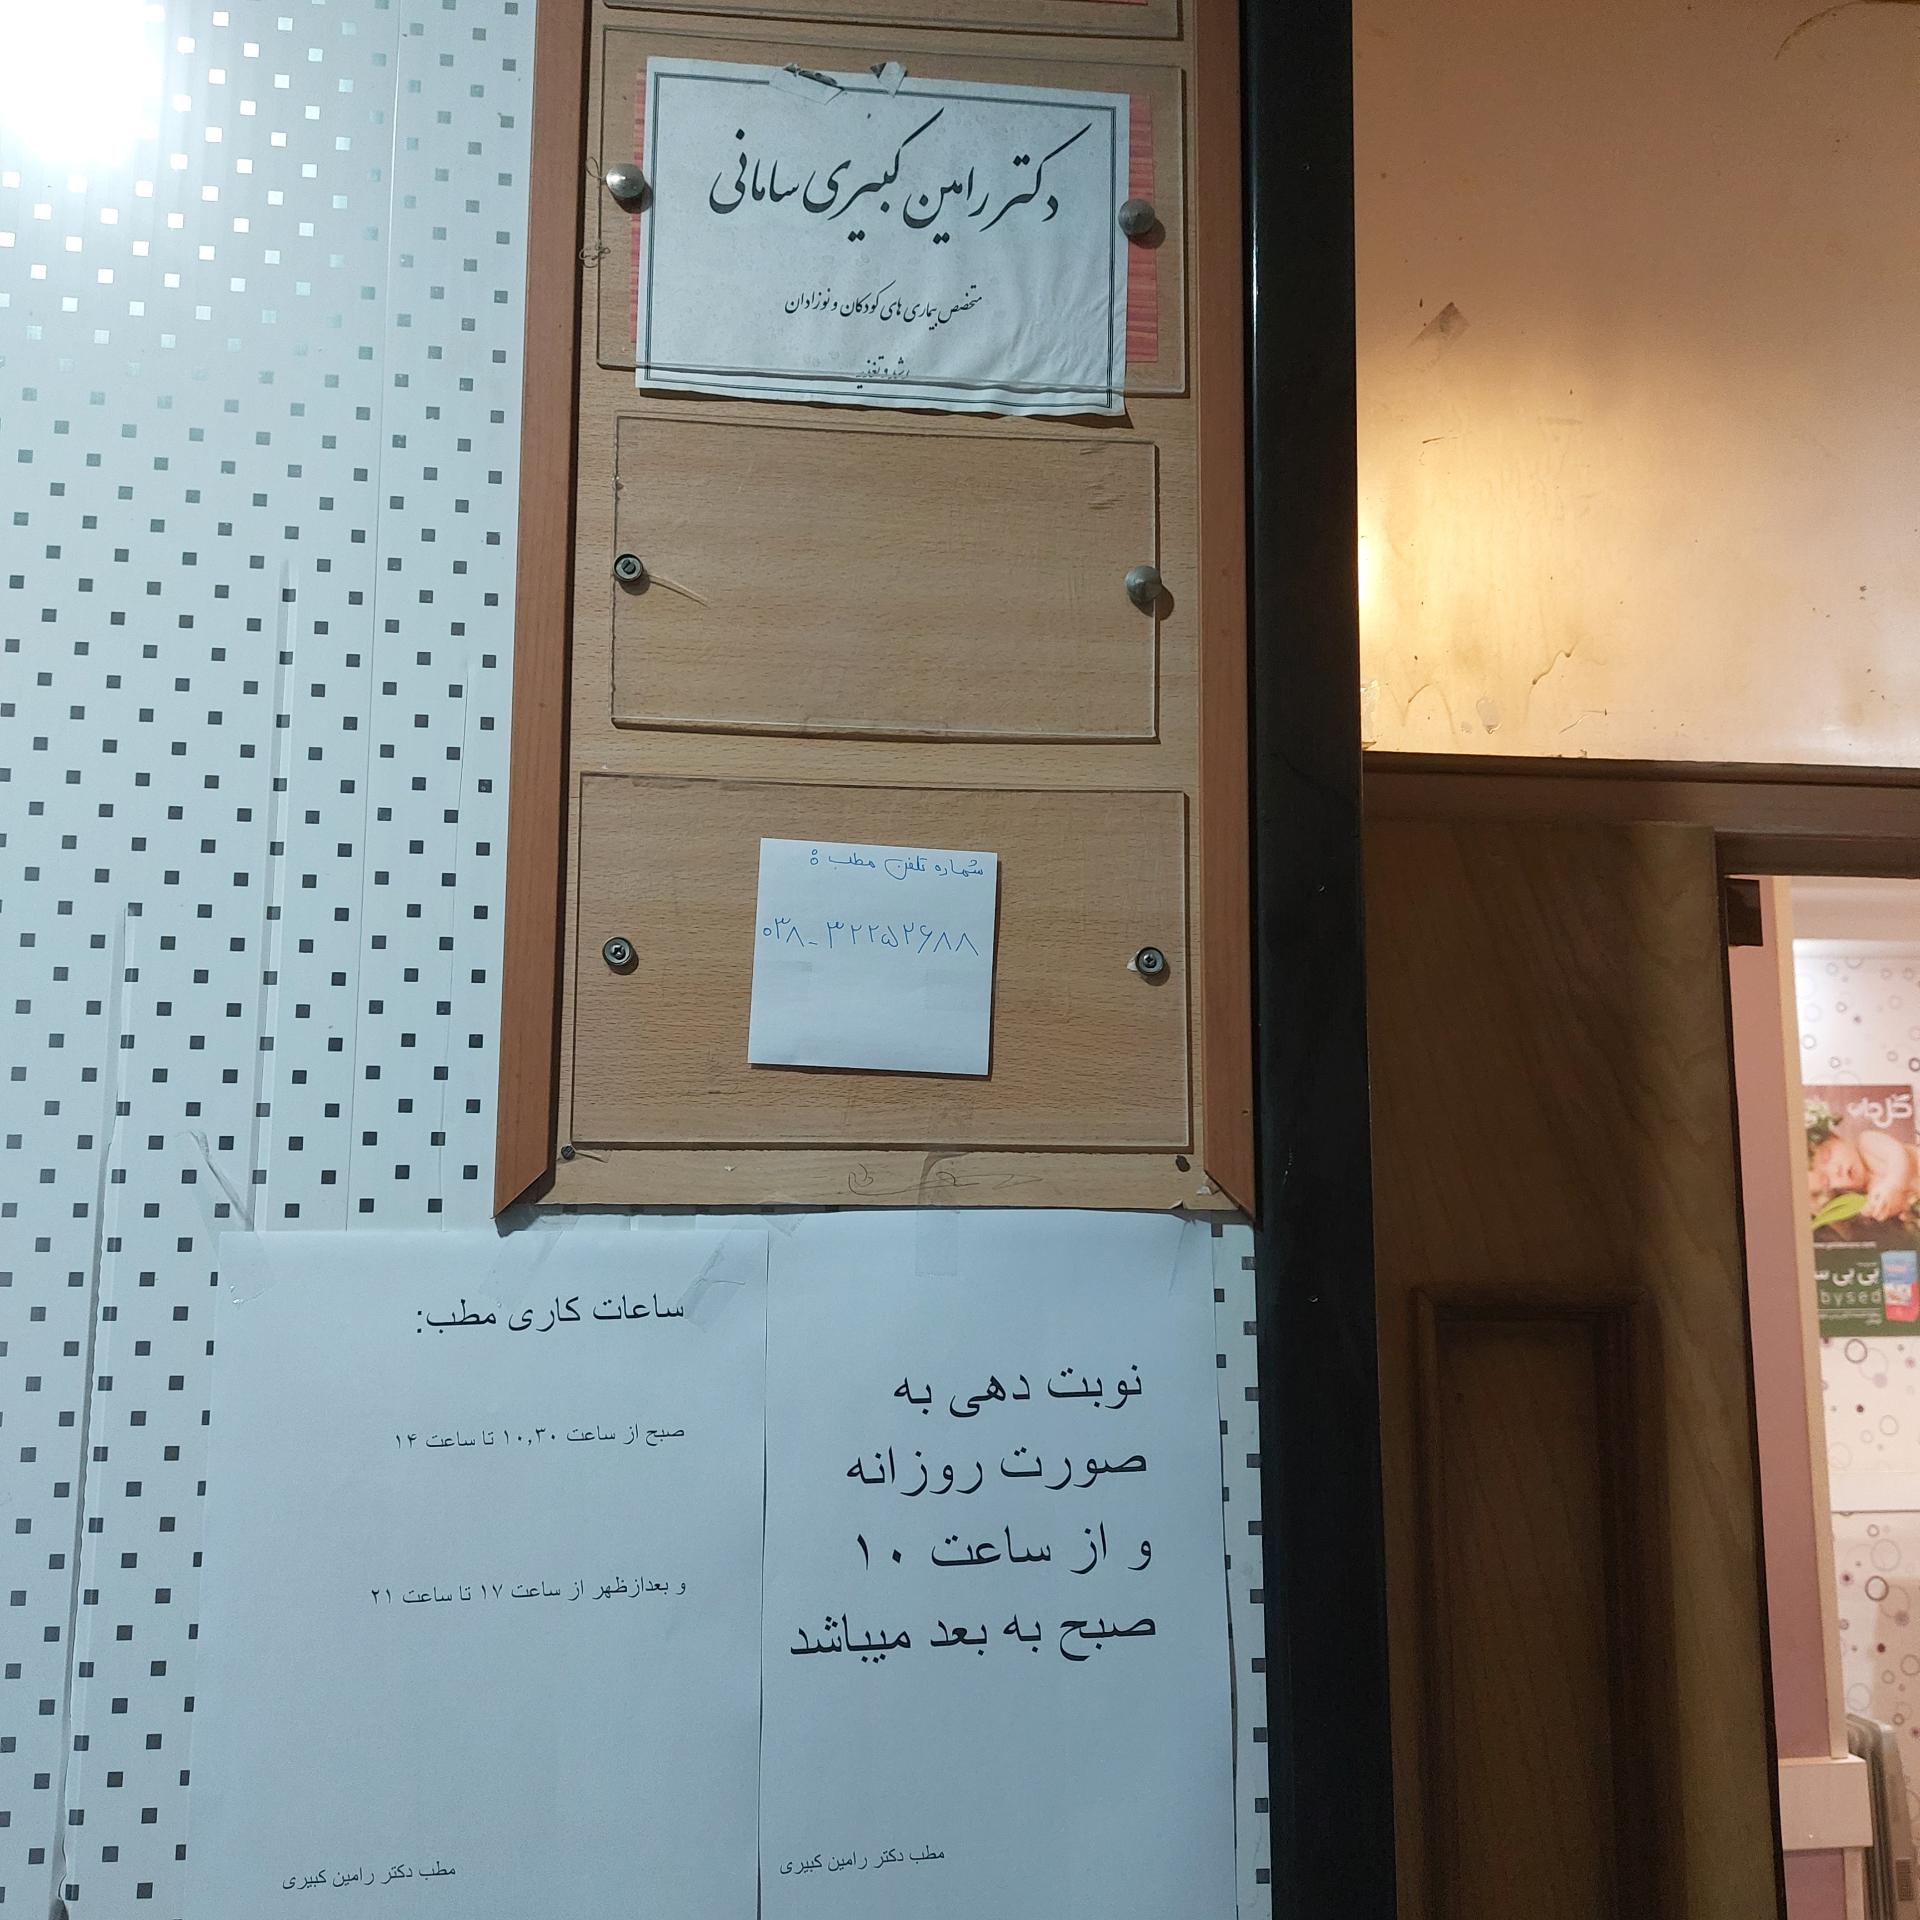 دکتر رامین کبیری سامانی
متخصص بیماری های کودکان و نوزادان
رشد و تغذیه
شماره تلفن مطب :
۰۳۸-۳۲۲۵۲۶۸۸
ساعات کاری مطب:
صبح از ساعت ۱۰,۳۰ تا ساعت ۱۴
و بعدازظهر از ساعت ۱۷ تا ساعت ۲۱
مطب دکتر رامین کبیری
نوبت دهی به
صورت روزانه
و از ساعت ۱۰
صبح به بعد میباشد
مطب دکتر رامین کبیری
بی بی س
bysed